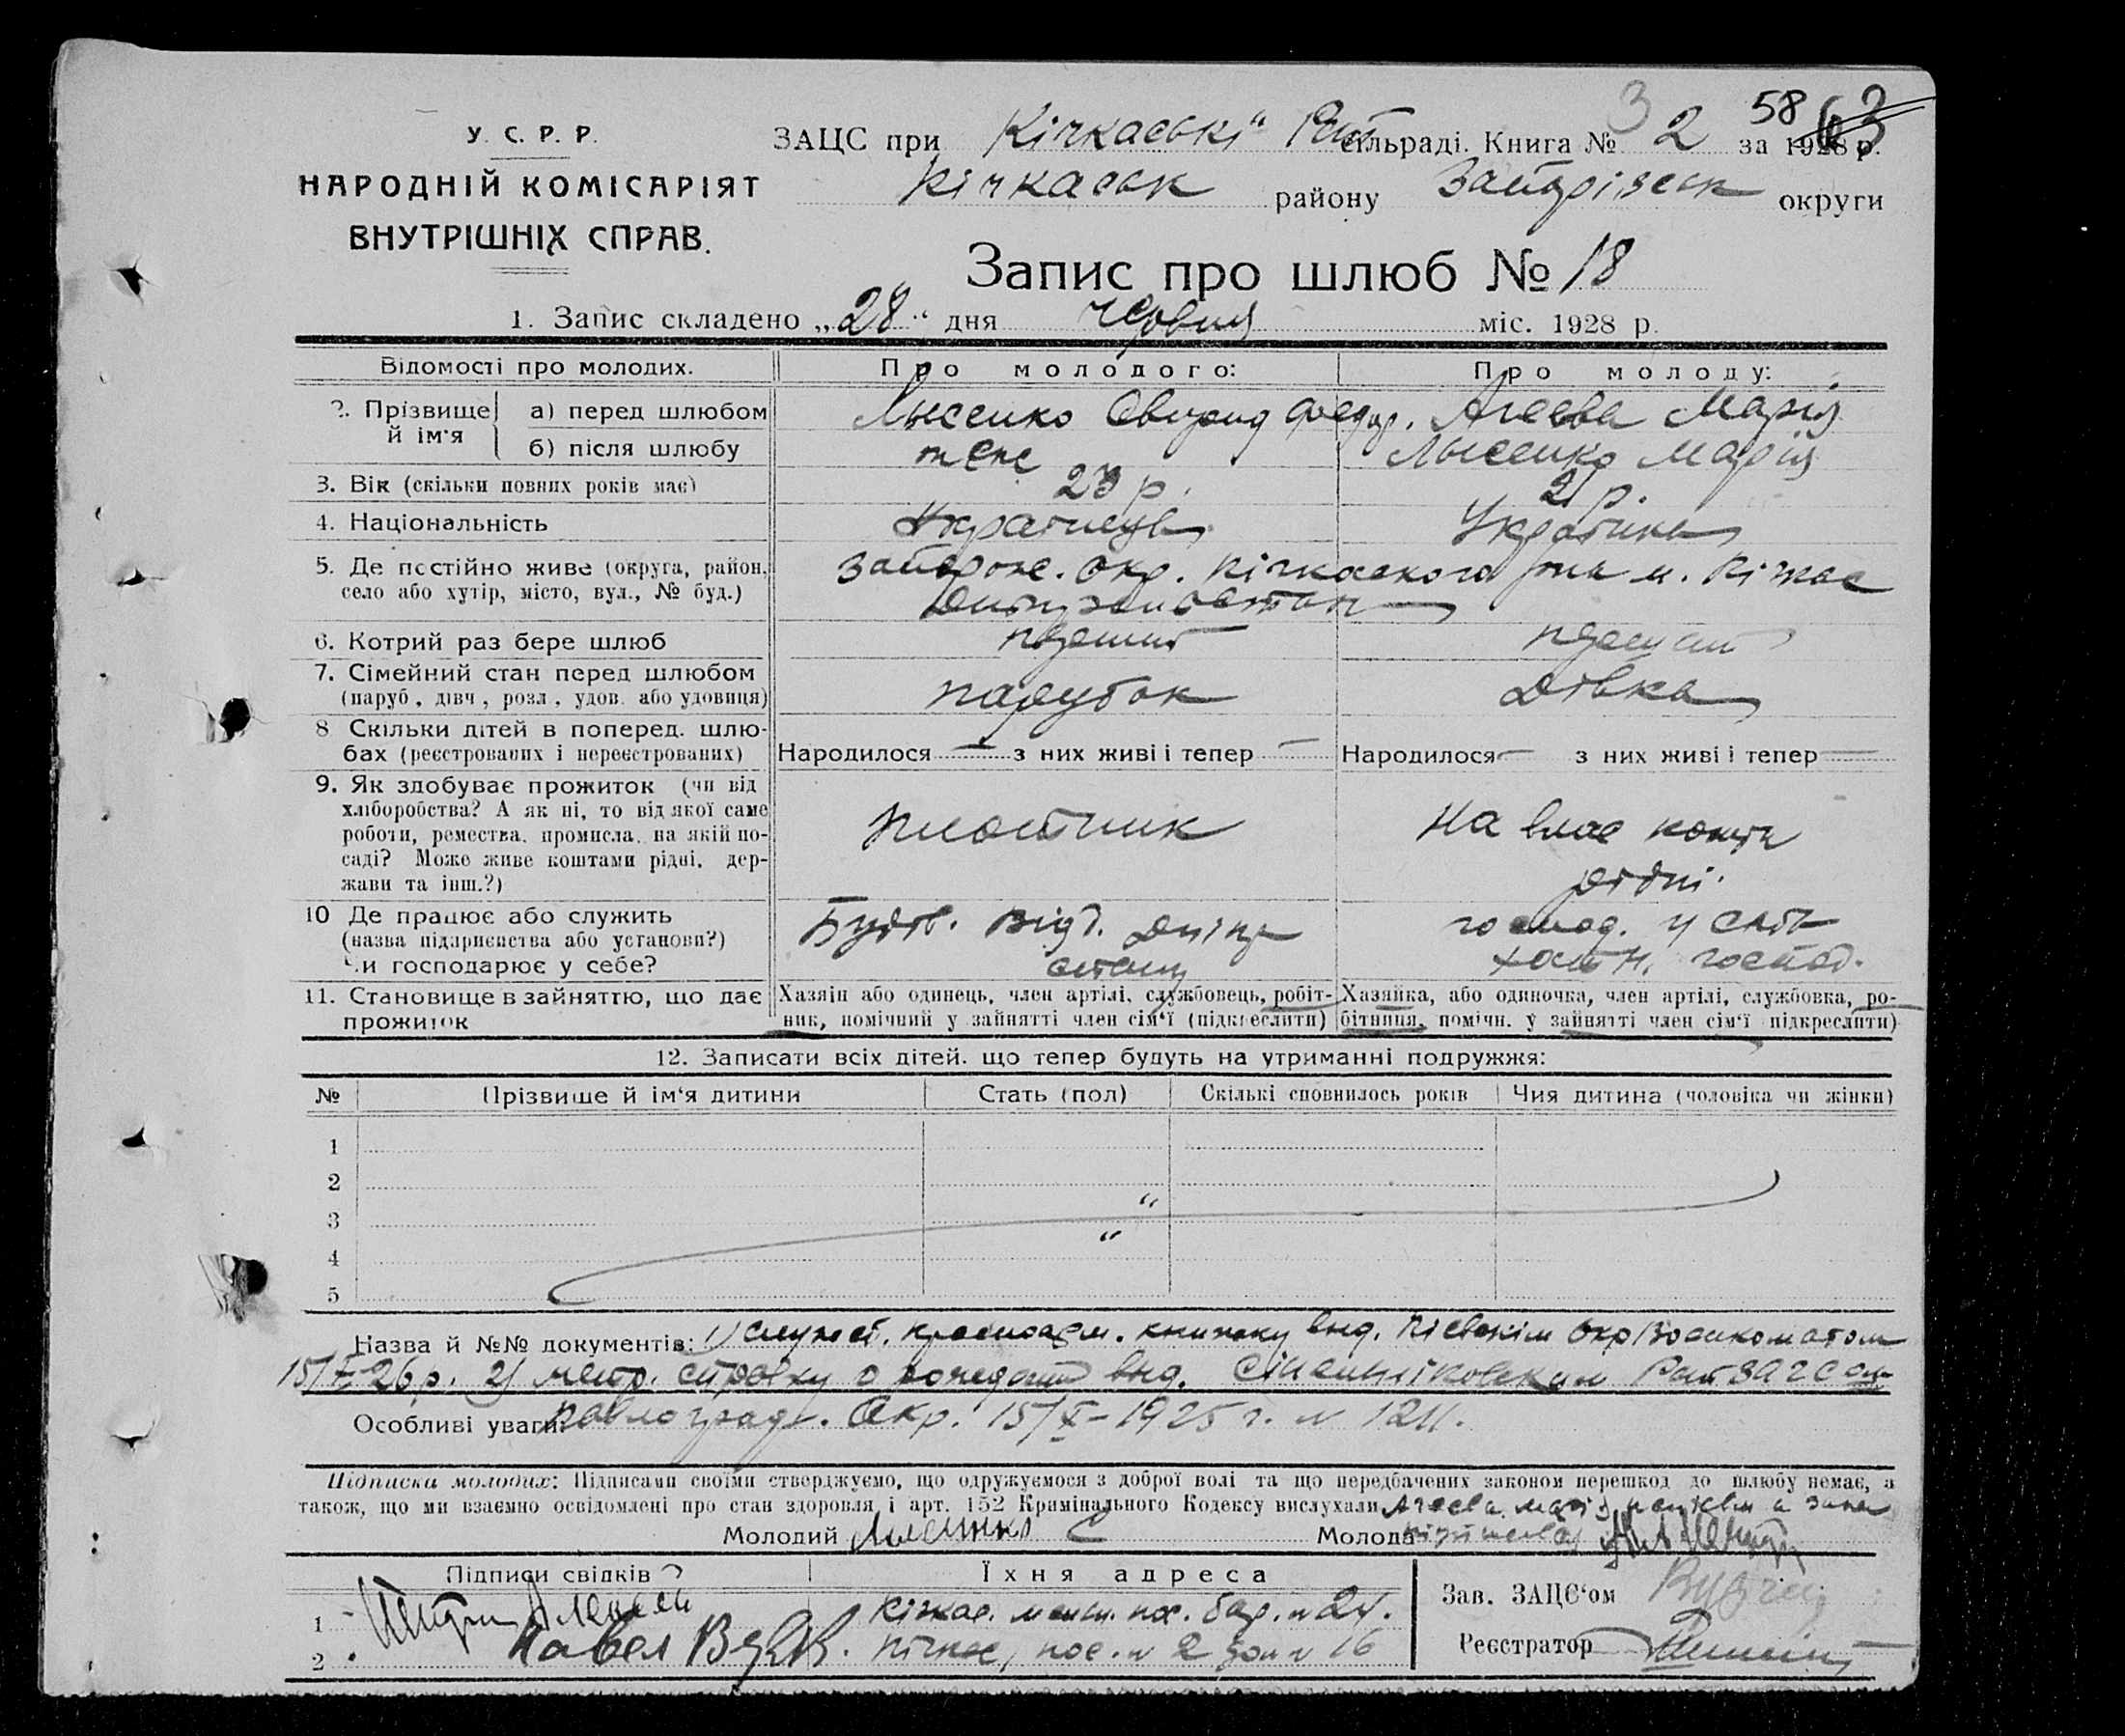 3 58 63
У. С. Р. Р.
НАРОДНІЙ КОМІСАРІЯТ
ВНУТРІШНІХ СПРАВ.
ЗАЦС при Кічкаські" Рай сільраді. Книга № 2 за 1928 р.
Кічкаськ району Запорізськ округи
Запис про шлюб № 18
1. Запис складено „28" дня червня міс. 1928 р.
Відомості про молодих. Про молодого: Про молоду:
2. Прізвище й ім'я а) перед шлюбом Лысенко Федор. Агеева Марія
б) після шлюбу теж Лысенко Марія
3. Вік (скільки повних років має) 23 р. 21 р.
4. Національність Українець Українка
5. Де постійно живе (округа, район, Запорож. Окр. Кічкаського р-на м. Кічкас
село або хутір, місто, вул., № буд.)
6. Котрий раз бере шлюб первий первий
7. Сімейний стан перед шлюбом парубок дівка
(паруб., дівч., розл., удов. або удовиця)
8 Скільки дітей в поперед. шлю-
бах (реєстрованих і нереєстрованих) Народилося — з них живі і тепер — Народилося — з них живі і тепер —
9. Як здобуває прожиток (чи від
хліборобства? А як ні, то від якої саме
роботи, ремества, промисла, на якій по- плотник На влас кошти
саді? Може живе коштами рідні, дер-
жави та інш.?) рідні.
10 Де працює або служить Будів. Відд. Дніпр господ. у своїм
(назва підприємства або установи?)
Чи господарює у себе? господ.
11. Становище в зайняттю, що дає Хазяїн або одинець, член артілі, службовець, робіт- Хазяйка, або одиночка, член артілі, службовка, ро-
прожиток ник, помічний у зайнятті член сім'ї (підкреслити) бітниця, помічн. у зайнятті член сім'ї підкреслити)
12. Записати всіх дітей, що тепер будуть на утриманні подружжя:
№ Прізвище й ім'я дитини Стать (пол) Скількі сповнилось років Чия дитина (чоловіка чи жінки)
1
2
"
3
"
4
5
Назва й №№ документів: 1) служеб. красноарм. книжку выд. Київським Окр Военкоматом
26 р. 2) метр. справку о рождении выд. Синельніковським РайЗАГСом
Особливі уваги: Павлоград. Окр. 15/X-1925 г. № 1211.
Підписки молодих: Підписами своїми стверджуємо, що одружуємося з доброї волі та що передбачених законом перешкод до шлюбу немає, а
також, що ми взаємно освідомлені про стан здоровля і арт. 152 Кримінального Кодексу вислухали Агеева Марія
Молодий Лысенко С Молода
Підписи свідків Їхня адреса
1 Кічкас. № 24. Зав. ЗАЦС'ом
2 Павел Кічкас, пос. № 2 дом № 16 Реєстратор